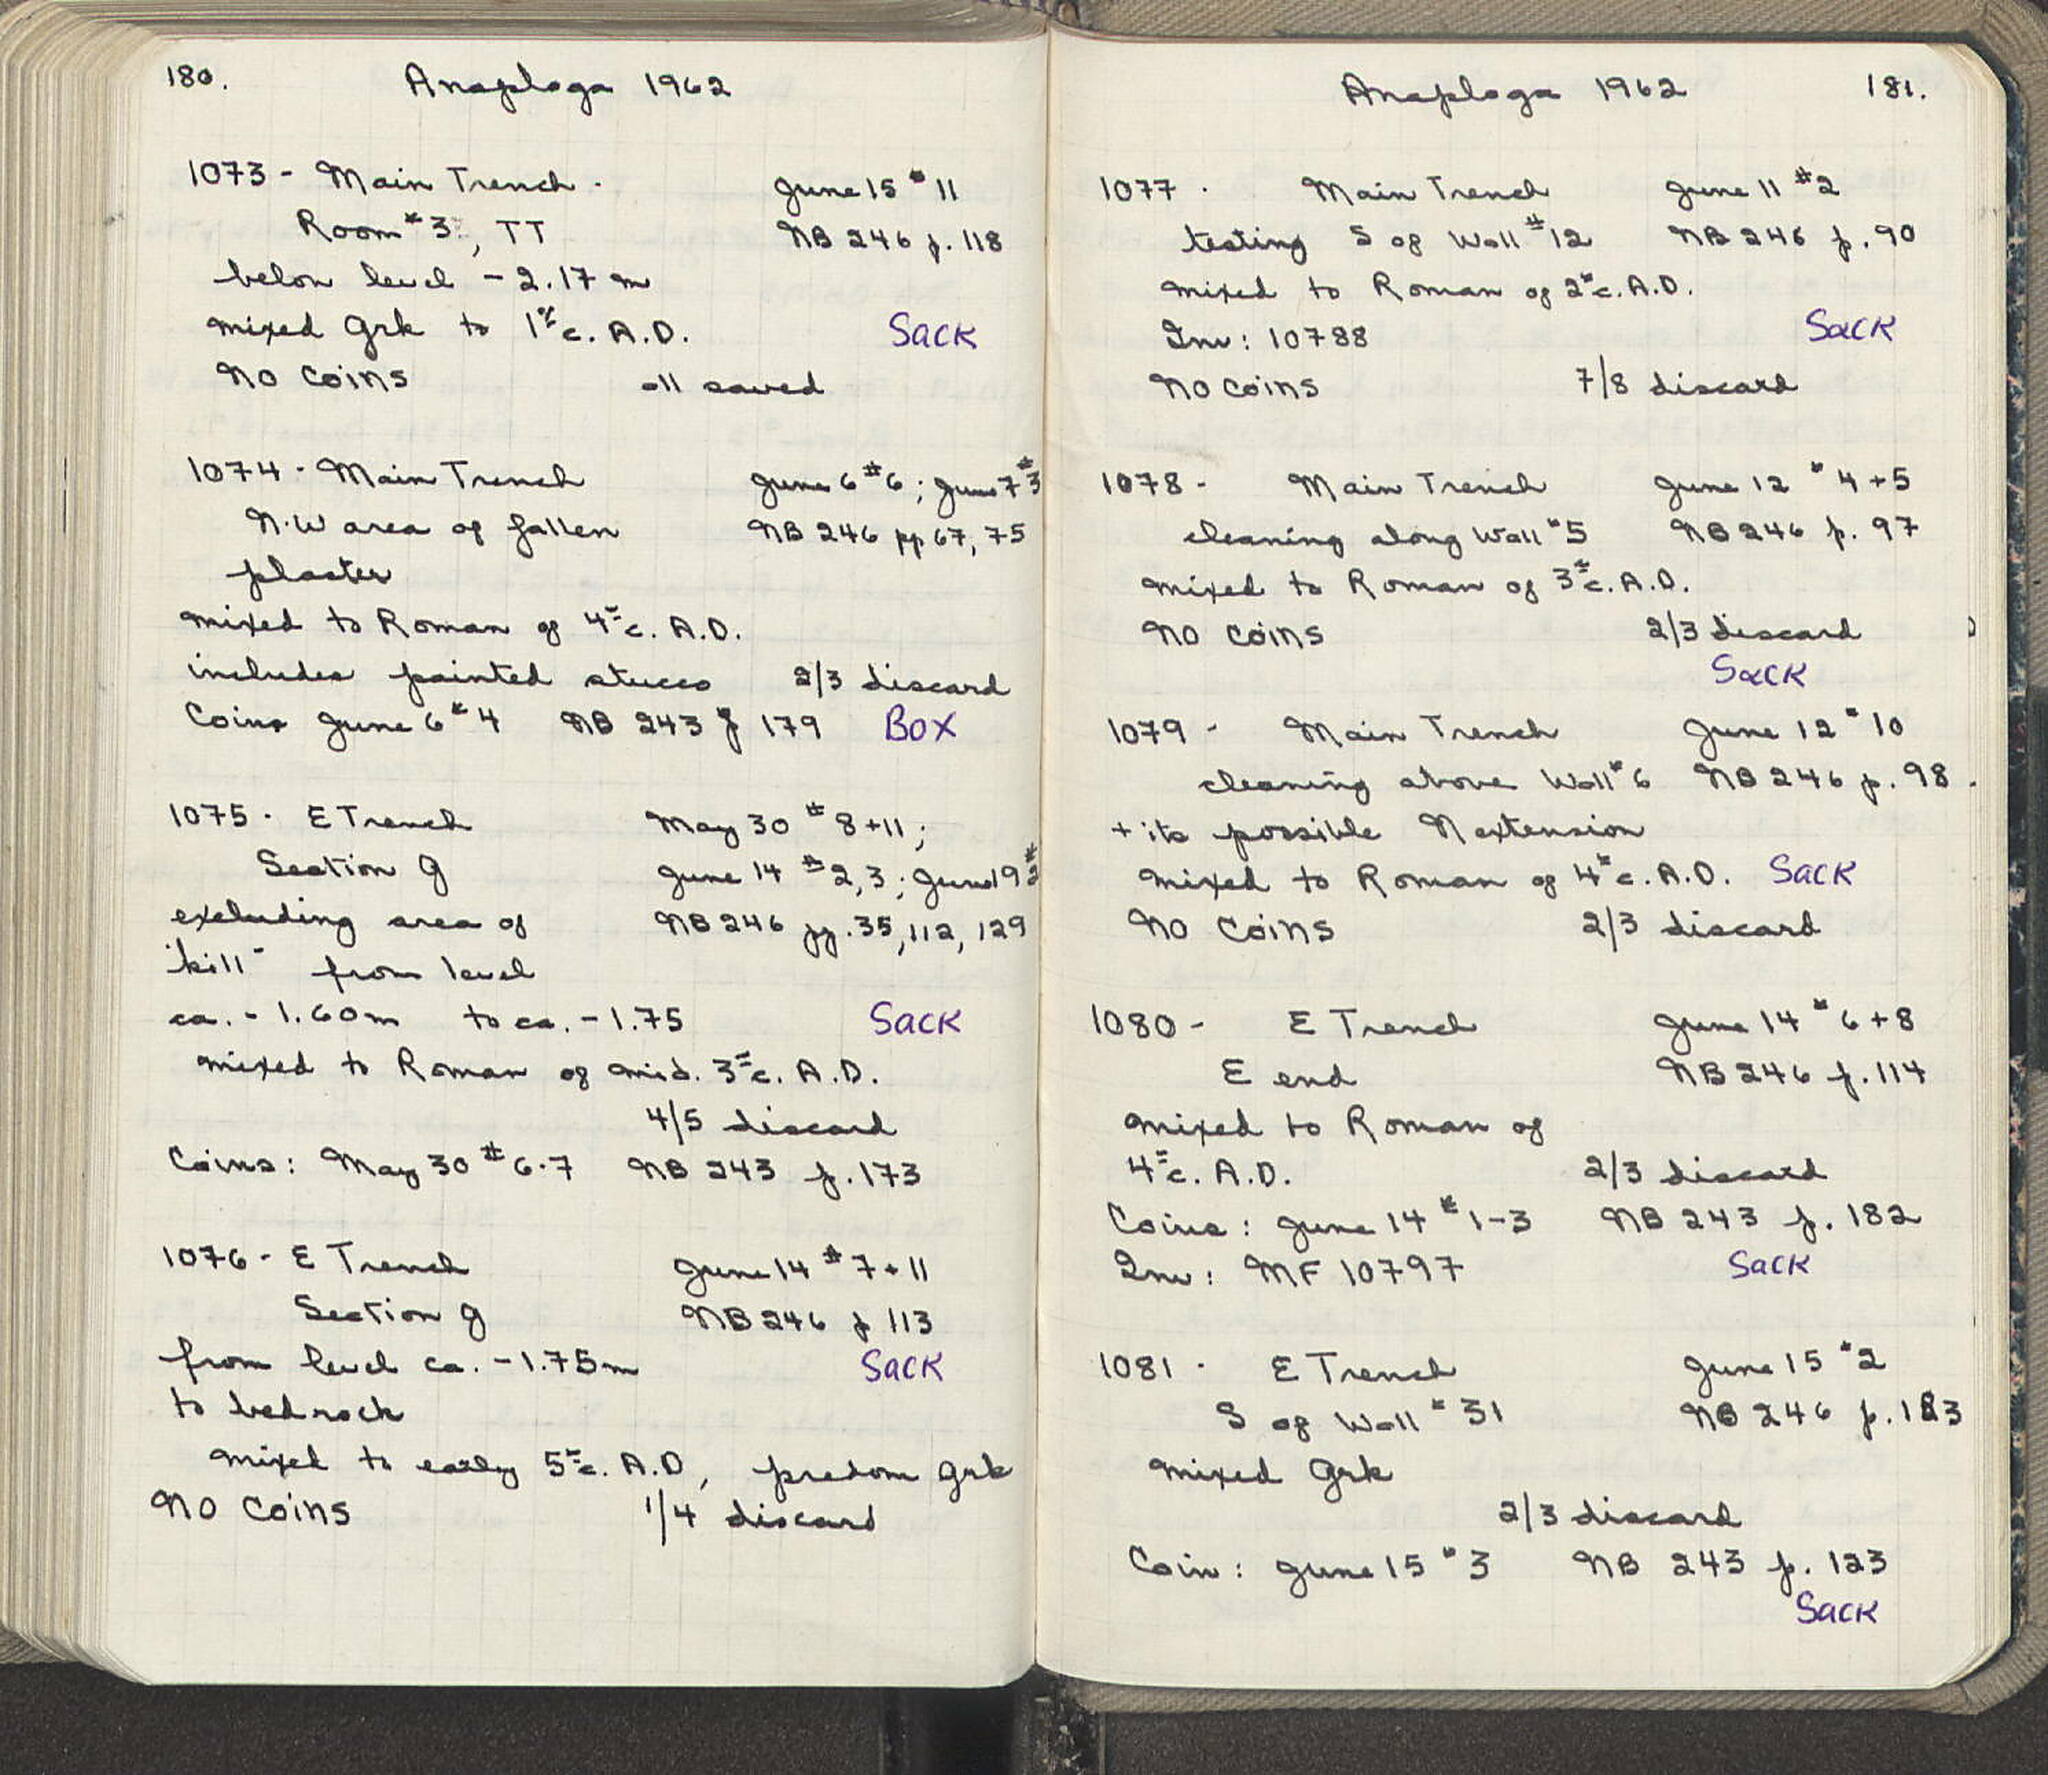 180. Anaploga 1962
1073 - Main Trench. June 15 #11
Room #3, TT NB 246 p. 118
below level - 2.17 m
mixed Grk to 1st c. A.D. Sack
No Coins all saved
1074 - Main Trench June 6 #6; June 7 #3
N.W area of fallen NB 246 pp 67, 75
plaster
mixed to Roman of 4th c. A.D.
includes painted stucco 2/3 discard
Coins June 6 #4 NB 243 p 179 BOX
1075 - E Trench May 30 #8+11;
Section G June 14 #2,3; June 19 #2
excluding area of NB 246 pp. 35, 112, 129
"kill" from level
ca. - 1.60m to ca. - 1.75 Sack
mixed to Roman of mid. 3rd c. A.D.
4/5 discard
Coins: May 30 #6-7 NB 243 p. 173
1076 - E Trench June 14 #7+11
Section G NB 246 p 113
from level ca. - 1.75m Sack
to bedrock
mixed to early 5th c. A.D, predom Grk
No Coins 1/4 discard
Anaploga 1962 181.
1077. Main Trench June 11 #2
testing S of Wall #12 NB 246 p. 90
mixed to Roman of 2nd c. A.D.
Inv: 10788 Sack
No Coins 7/8 discard
1078 - Main Trench June 12 #4+5
cleaning along Wall #5 NB 246 p. 97
mixed to Roman of 3rd c. A.D.
No Coins 2/3 discard
Sack
1079 - Main Trench June 12 #10
cleaning above Wall #6 NB 246 p. 98.
+ its possible N extension
mixed to Roman of 4th c. A.D. Sack
No Coins 2/3 discard
1080 - E Trench June 14 #6+8
E end NB 246 p. 114
mixed to Roman of
4th c. A.D. 2/3 discard
Coins: June 14 #1-3 NB 243 p. 182
Inv: MF 10797 Sack
1081. E Trench June 15 #2
S of Wall #31 NB 246 p.
mixed Grk
2/3 discard
Coin: June 15 #3 NB 243 p. 123
Sack